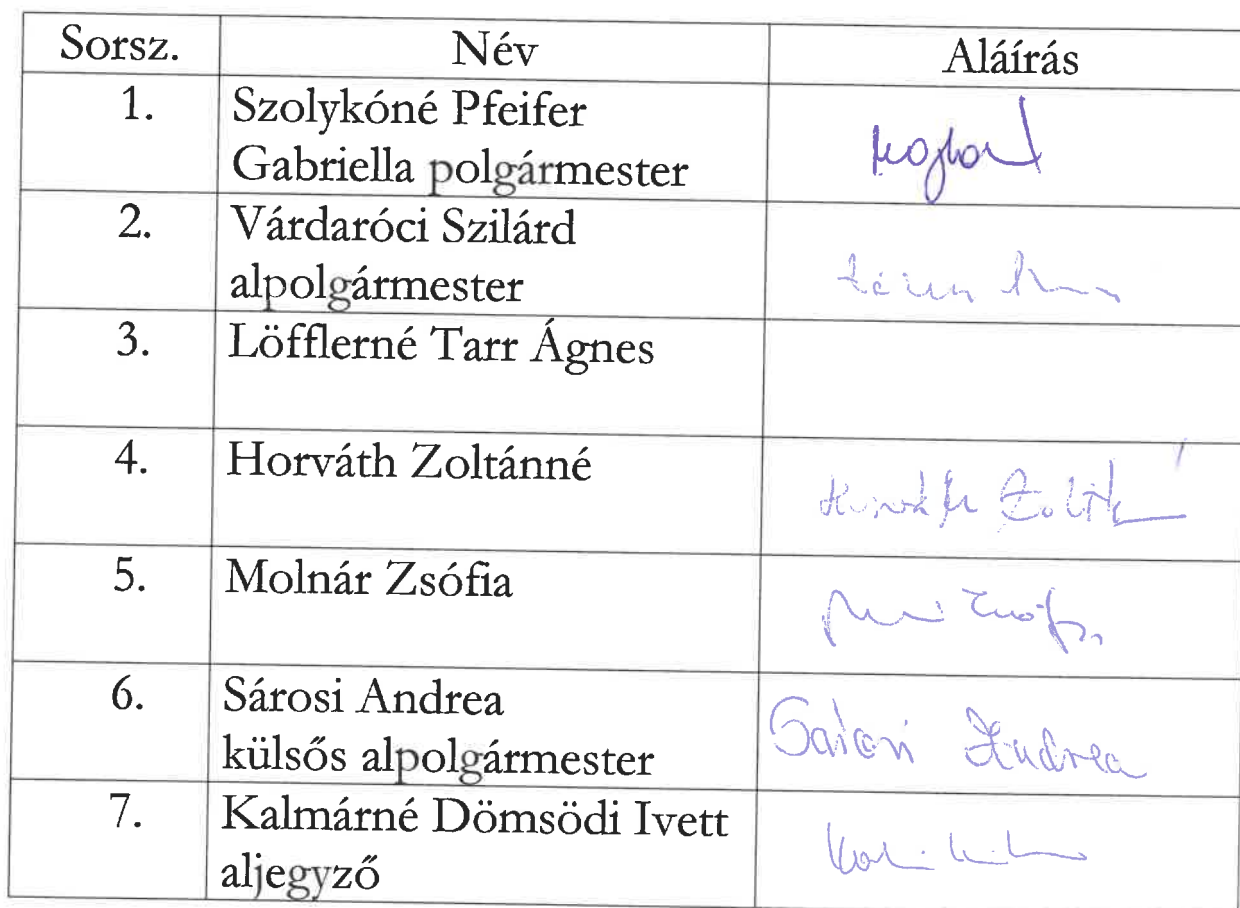 Sorsz. Név Aláírás
1. Szolykóné Pfeifer
Gabriella polgármester
2. Várdaróci Szilárd
alpolgármester
3. Löfflerné Tarr Ágnes
4. Horváth Zoltánné
5. Molnár Zsófia
6. Sárosi Andrea
külsős alpolgármester
Sárosi Andrea
7. Kalmárné Dömsödi Ivett
aljegyző